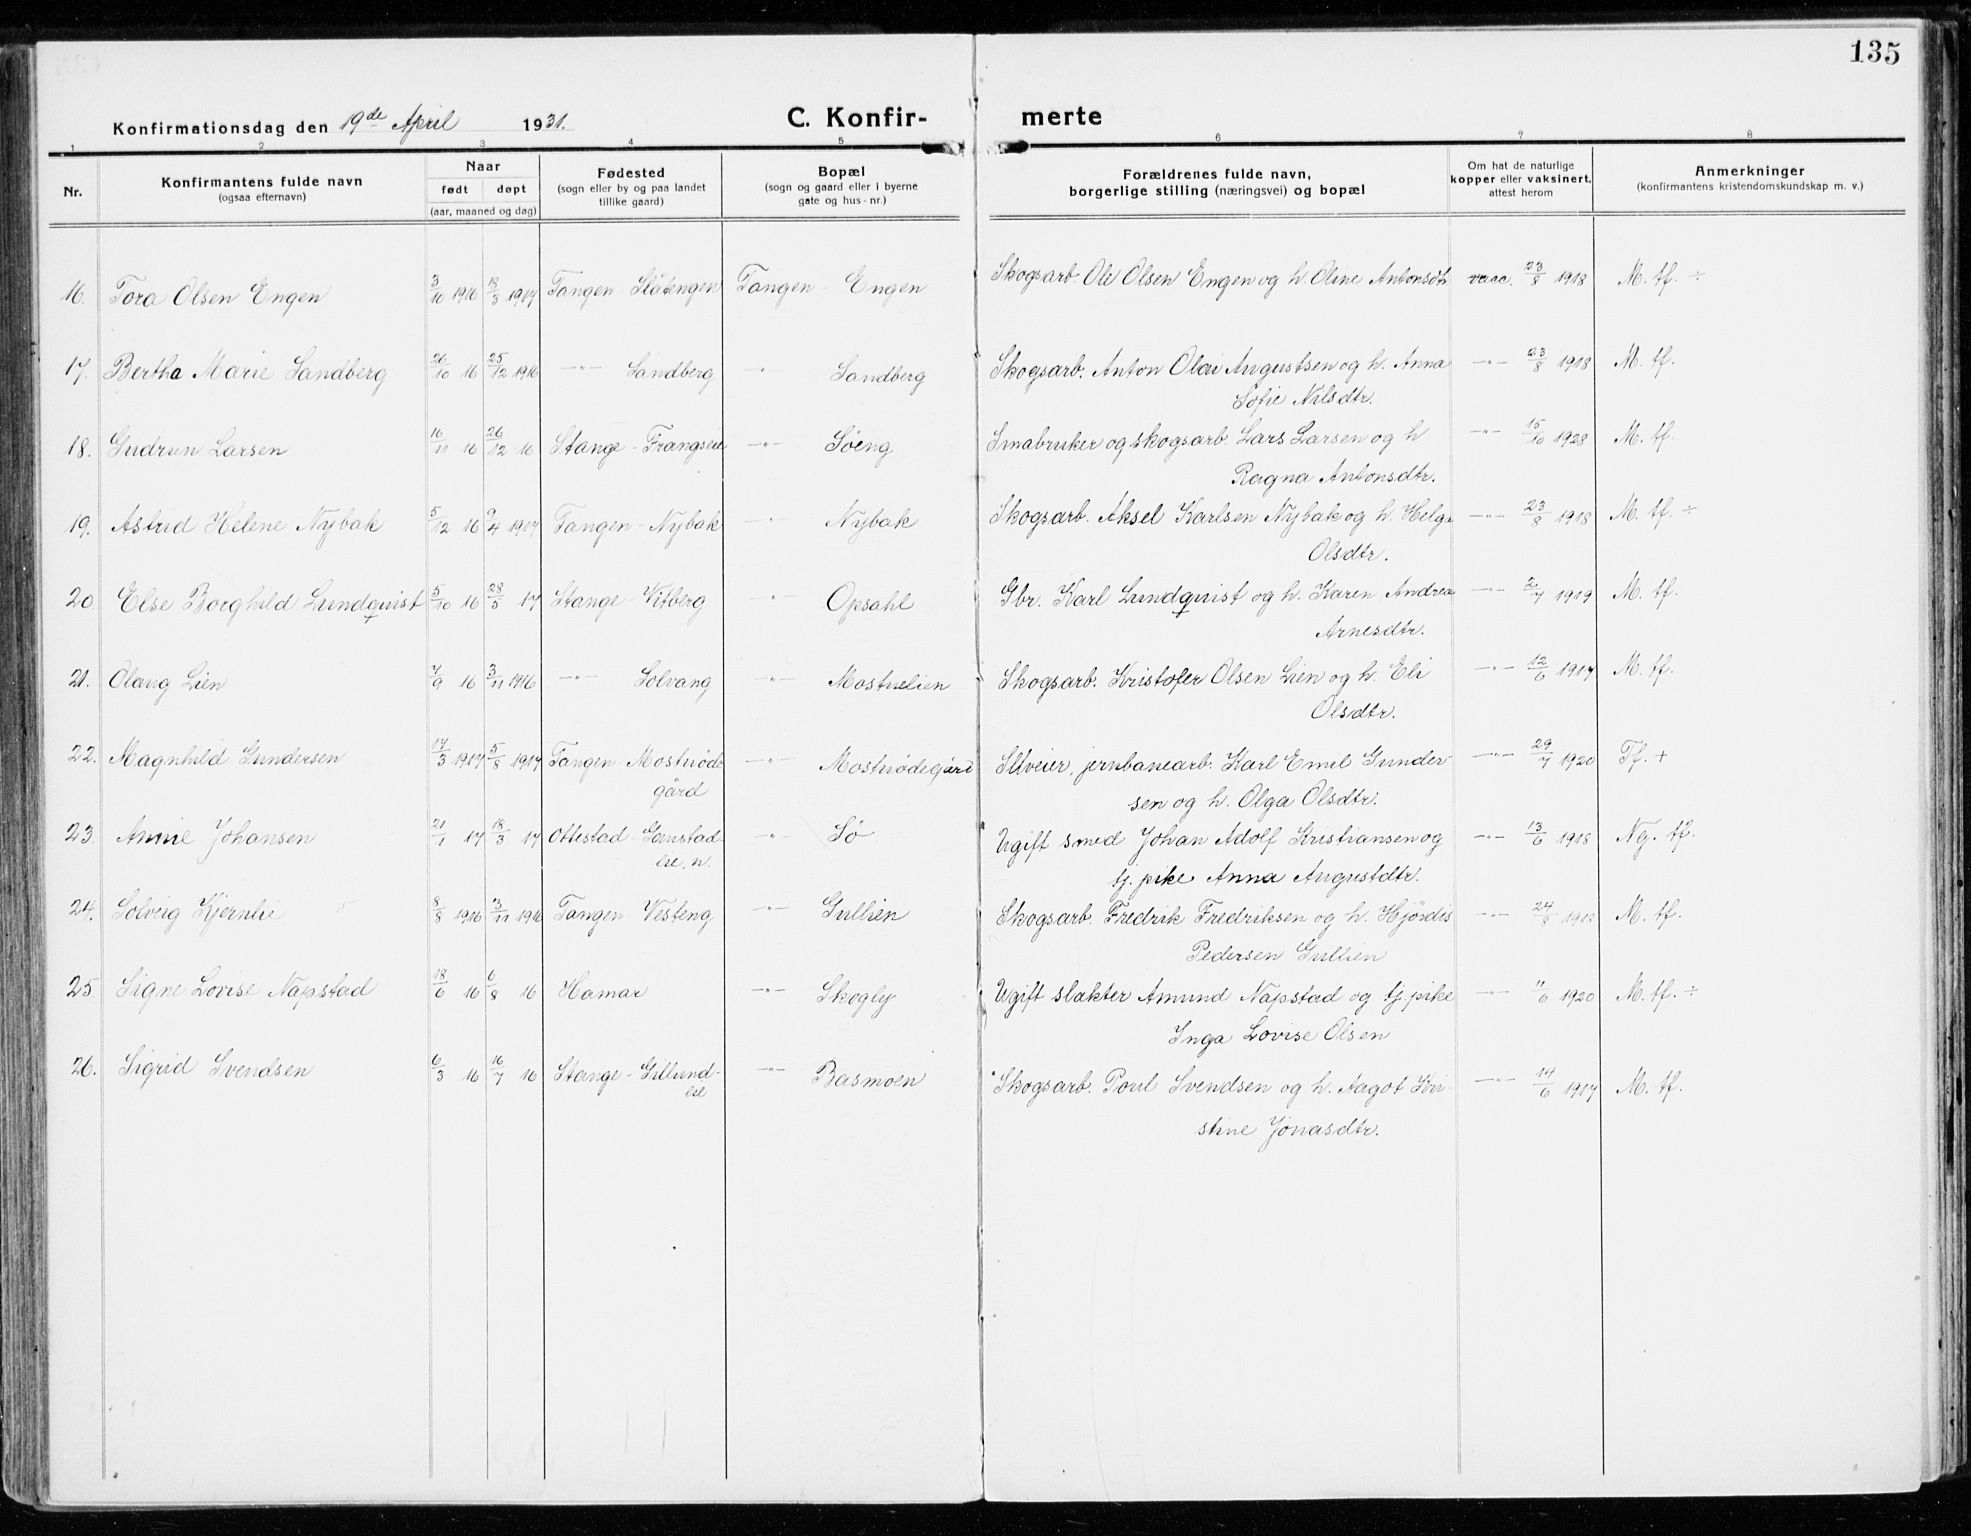 135
Konfirmationsdag den 19de April 1931.
C. Konfirmerte
1 2 3 4 5 6 7 8
Nr.
Konfirmantens fulde navn
(ogsaa efternavn)
Naar
født døpt
(aar, maaned og dag)
Fødested
(sogn eller by og paa landet
tillike gaard)
Bopæl
(sogn og gaard eller i byerne
gate og hus-nr.)
Forældrenes fulde navn,
borgerlige stilling (næringsvei) og bopæl
Om hat de naturlige
kopper eller vaksinert,
attest herom
Anmerkninger
(konfirmantens kristendomskundskap m. v.)
16. Tora Olsen Engen 3/10 1916 18/3 1917 Tangen - Slåtengen Tangen - Engen Skogsarb. Ole Olsen Engen og h. Oline Antonsdtr. vacc. 23/8 1918 M. tf. ÷
17. Bertha Marie Sandberg 26/10 16 25/12 1916 -"- Sandberg -"- Sandberg Skogsarb. Anton Olai Augustsen og h. Anna -"- 23/8 1918 M. tf.
Sofie Nilsdtr.
18. Gudrun Larsen 16/11 16 26/12 16 Stange - Frangseie -"- Søeng Småbruker og skogsarb. Lars Larsen og h -"- 15/10 1928 M. tf.
Ragna Antonsdtr.
19. Astrid Helene Nybak 5/12 16 9/4 1917 Tangen - Nybak -"- Nybak Skogsarb. Aksel Karlsen Nybak og h. Helga -"- 23/8 1918 M. tf. ÷
Olsdtr.
20 Else Borghild Lundquist 5/10 16 28/5 17 Stange - Vitberg -"- Opsahl Gbr. Karl Lundquist og h. Karen Andrea -"- 2/7 1919 M. tf.
Arnesdtr.
21. Olaug Lien 7/9 16 3/11 1916 -"- Solvang -"- Mostuelien Skogsarb. Kristofer Olsen Lien og h. Eli -"- 12/6 1917 M. tf.
Olsdtr.
22. Magnhild Gundersen 17/3 1917 5/8 1917 Tangen - Mostrøde- -"- Mostrødegård Selveier, jernbanearb. Karl Emil Gunder- -"- 29/7 1920 Tf. +
gård sen og h. Olga Olsdtr.
23. Annie Johansen 21/1 17 18/3 17 Ottestad - Gamstad- -"- Sø Ugift smed Johan Adolf Kristiansen og -"- 13/6 1918 Ng. tf.
eie, n. tj. pike Anna Augustdtr.
24. Solveig Kjernlie 8/8 1916 3/11 1916 Tangen - Vesteng -"- Gullien Skogsarb. Fredrik Fredriksen og h. Hjørdis -"- 24/8 M. tf.
Pedersen Gullien
25 Signe Lovise Napstad 18/6 16 6/8 16 Hamar -"- Skogly Ugift slakter Amund Napstad og tj. pike -"- 11/6 1920 M. tf. ÷
Inga Lovise Olsen
26. Sigrid Svendsen 6/3 16 16/7 16 Stange - Gillund- -"- Basmoen Skogsarb. Poul Svendsen og h. Aagot Kri- -"- 14/6 1917 M. tf.
eie stine Jonasdtr.